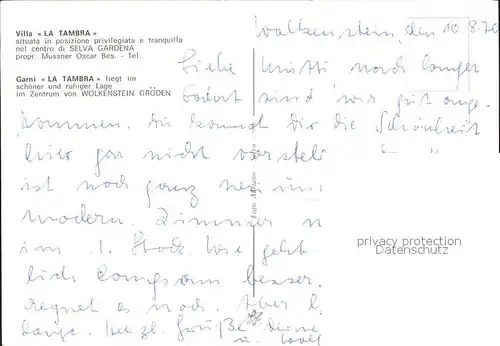 Villa « LA TAMBRA »
situata in posizione privilegiata e tranquilla
nel centro di SELVA GARDENA
propr. Mussner Oscar Bes. - Tel.
Garni « LA TAMBRA » liegt im
schöner und ruhiger Lage
im Zentrum von WOLKENSTEIN GRÖDEN
Wolkenstein, den 10.8.76
Liebe Mutti nach langer
sind wir gut ange-
kommen. Du kannst Dir die Schönheit
hier gar nicht vorstell
ist noch ganz neu un
modern. Zimmer
im 1. Stock
lich langsam besser.
regnet es noch. Aber
lange. Herzl. Grüße Deine
u. Wolf
Foto
privacy protection
Datenschutz